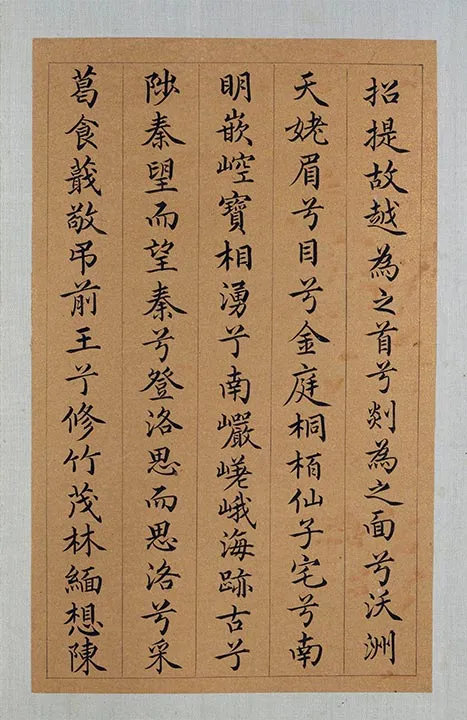 招提故越為之首兮剡為之面兮沃洲
天姥眉兮目兮金庭桐栢仙子宅兮南
明嵌崆寶相湧兮南巗嵯峨海跡古兮
陟秦望而望秦兮登洛思而思洛兮采
葛食蕺敬吊前王兮修竹茂林緬想陳